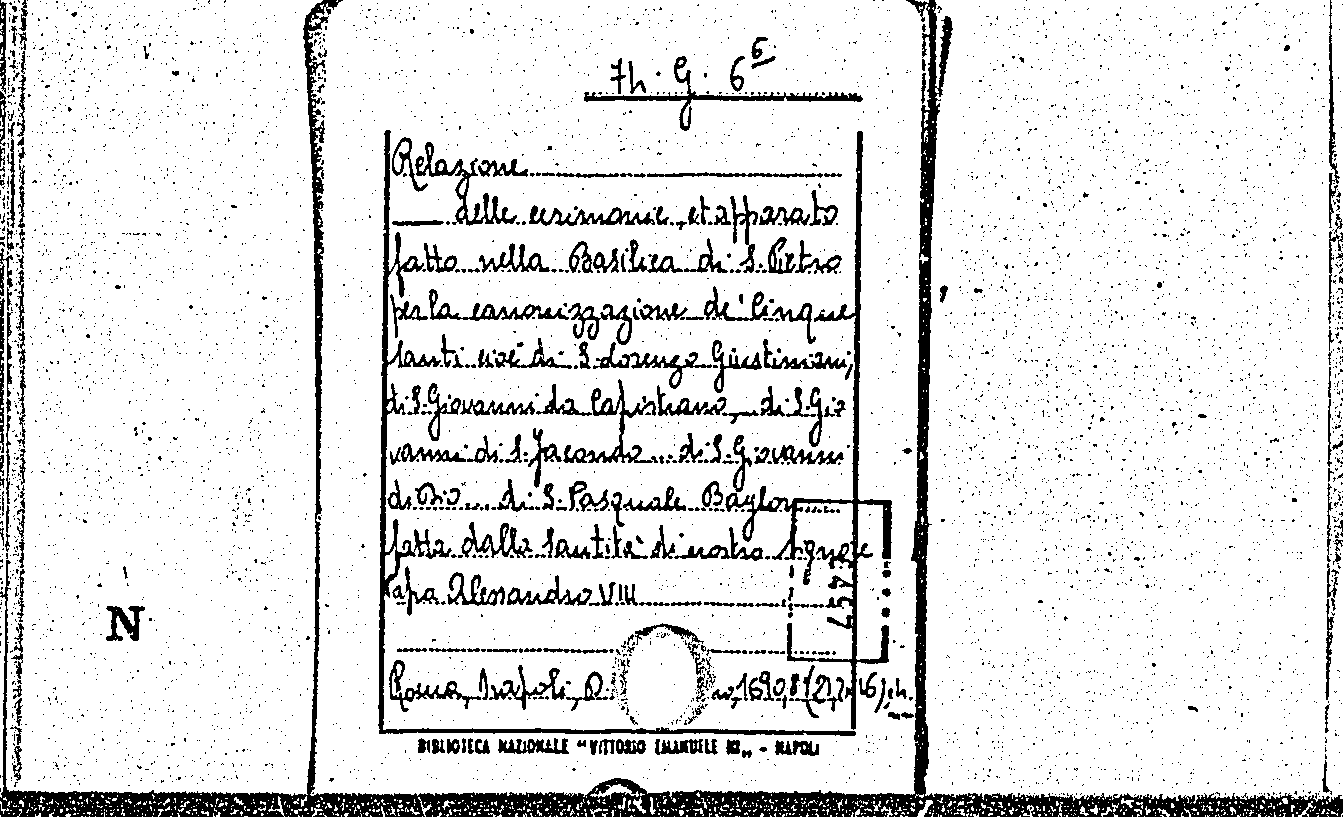 7h. G. 6⁶
Relazione
delle cerimonie, et apparato
fatto nella Basilica di S. Pietro
per la canonizzazione de' Cinque
Santi cioè di S. Lorenzo Giustiniani,
di S. Giovanni da Capistrano, di S. Gio
vanni di S. Facondo... di S. Giovanni
di Dio... di S. Pasquale Baylon
fatta dalla Santità di nostro Signore
apa Alessandro VIII
N
Roma, Napoli, 1690, 8
BIBLIOTECA NAZIONALE "VITTORIO EMANUELE III" - NAPOLI